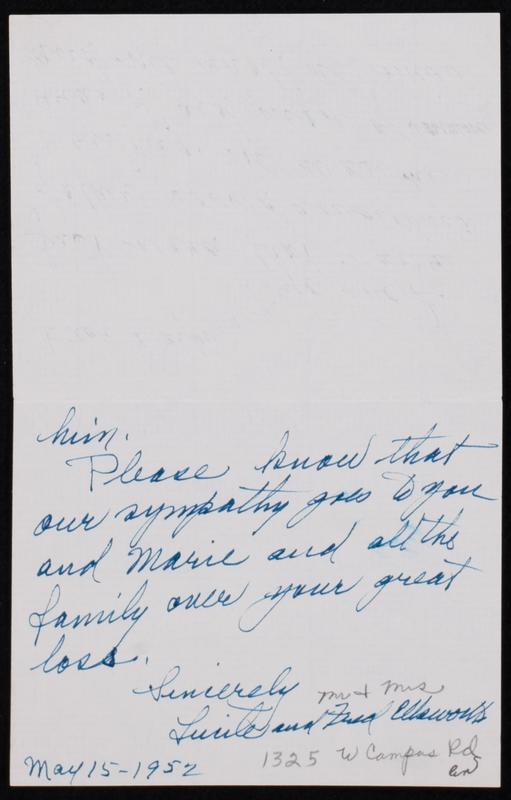 him.
Please know that
our sympathy goes to you
and Marie and all the
family over your great
loss.
Sincerely
Mr + Mrs
Lucile and Fred Ellsworth
1325 W Campus Rd
May 15-1952